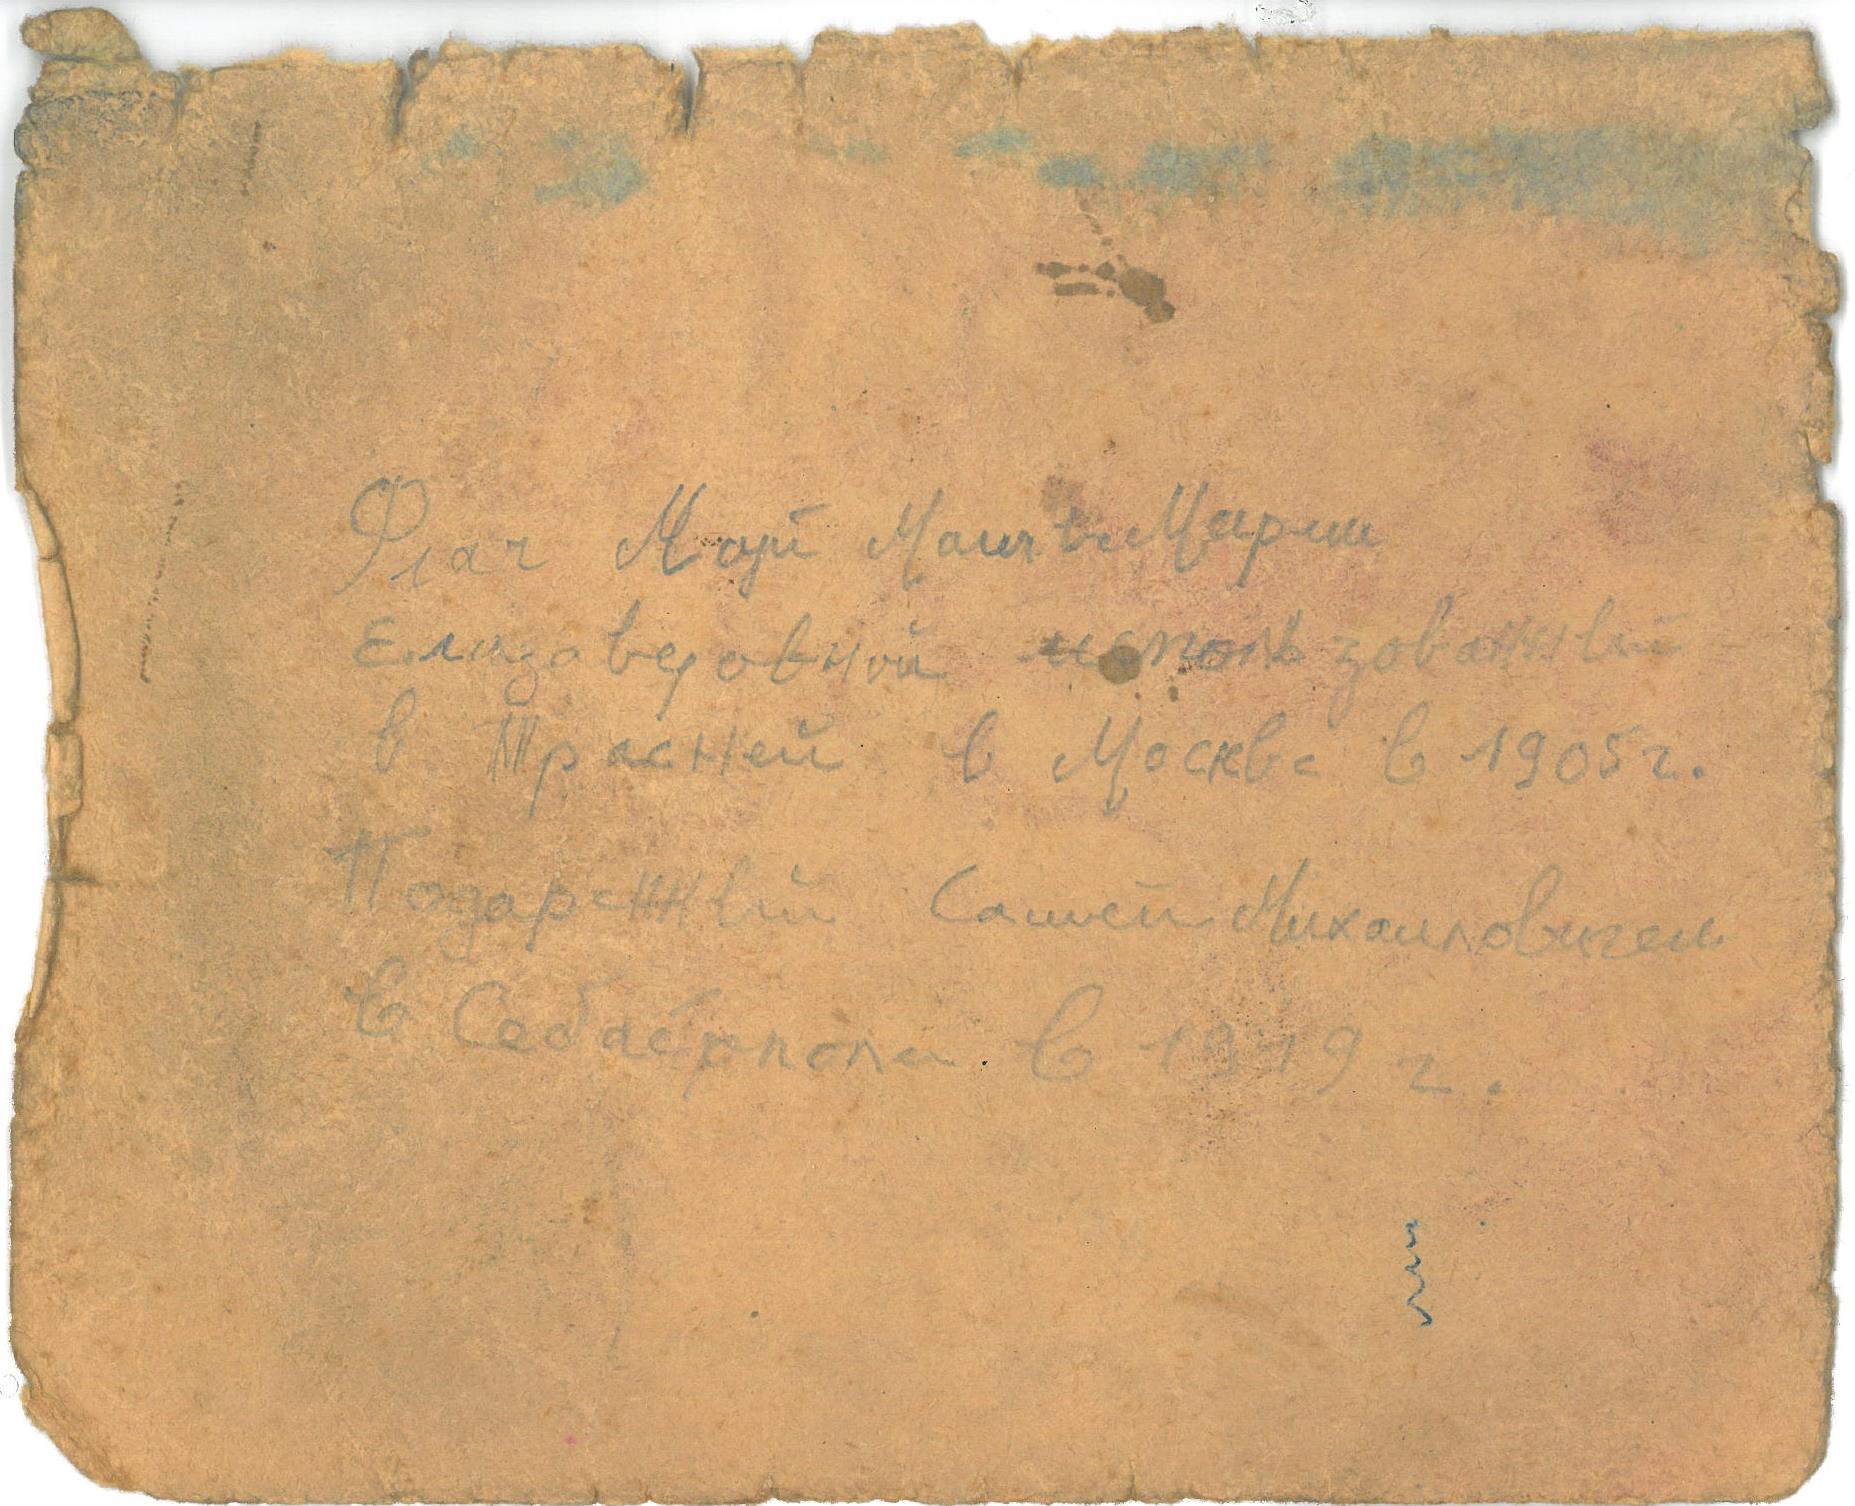 Флаг Мари
Елизаветовной использованный
в в Москве в 1905 г.
Подаренный Сашей Михайловичем
в Севастополи в 1919 г.